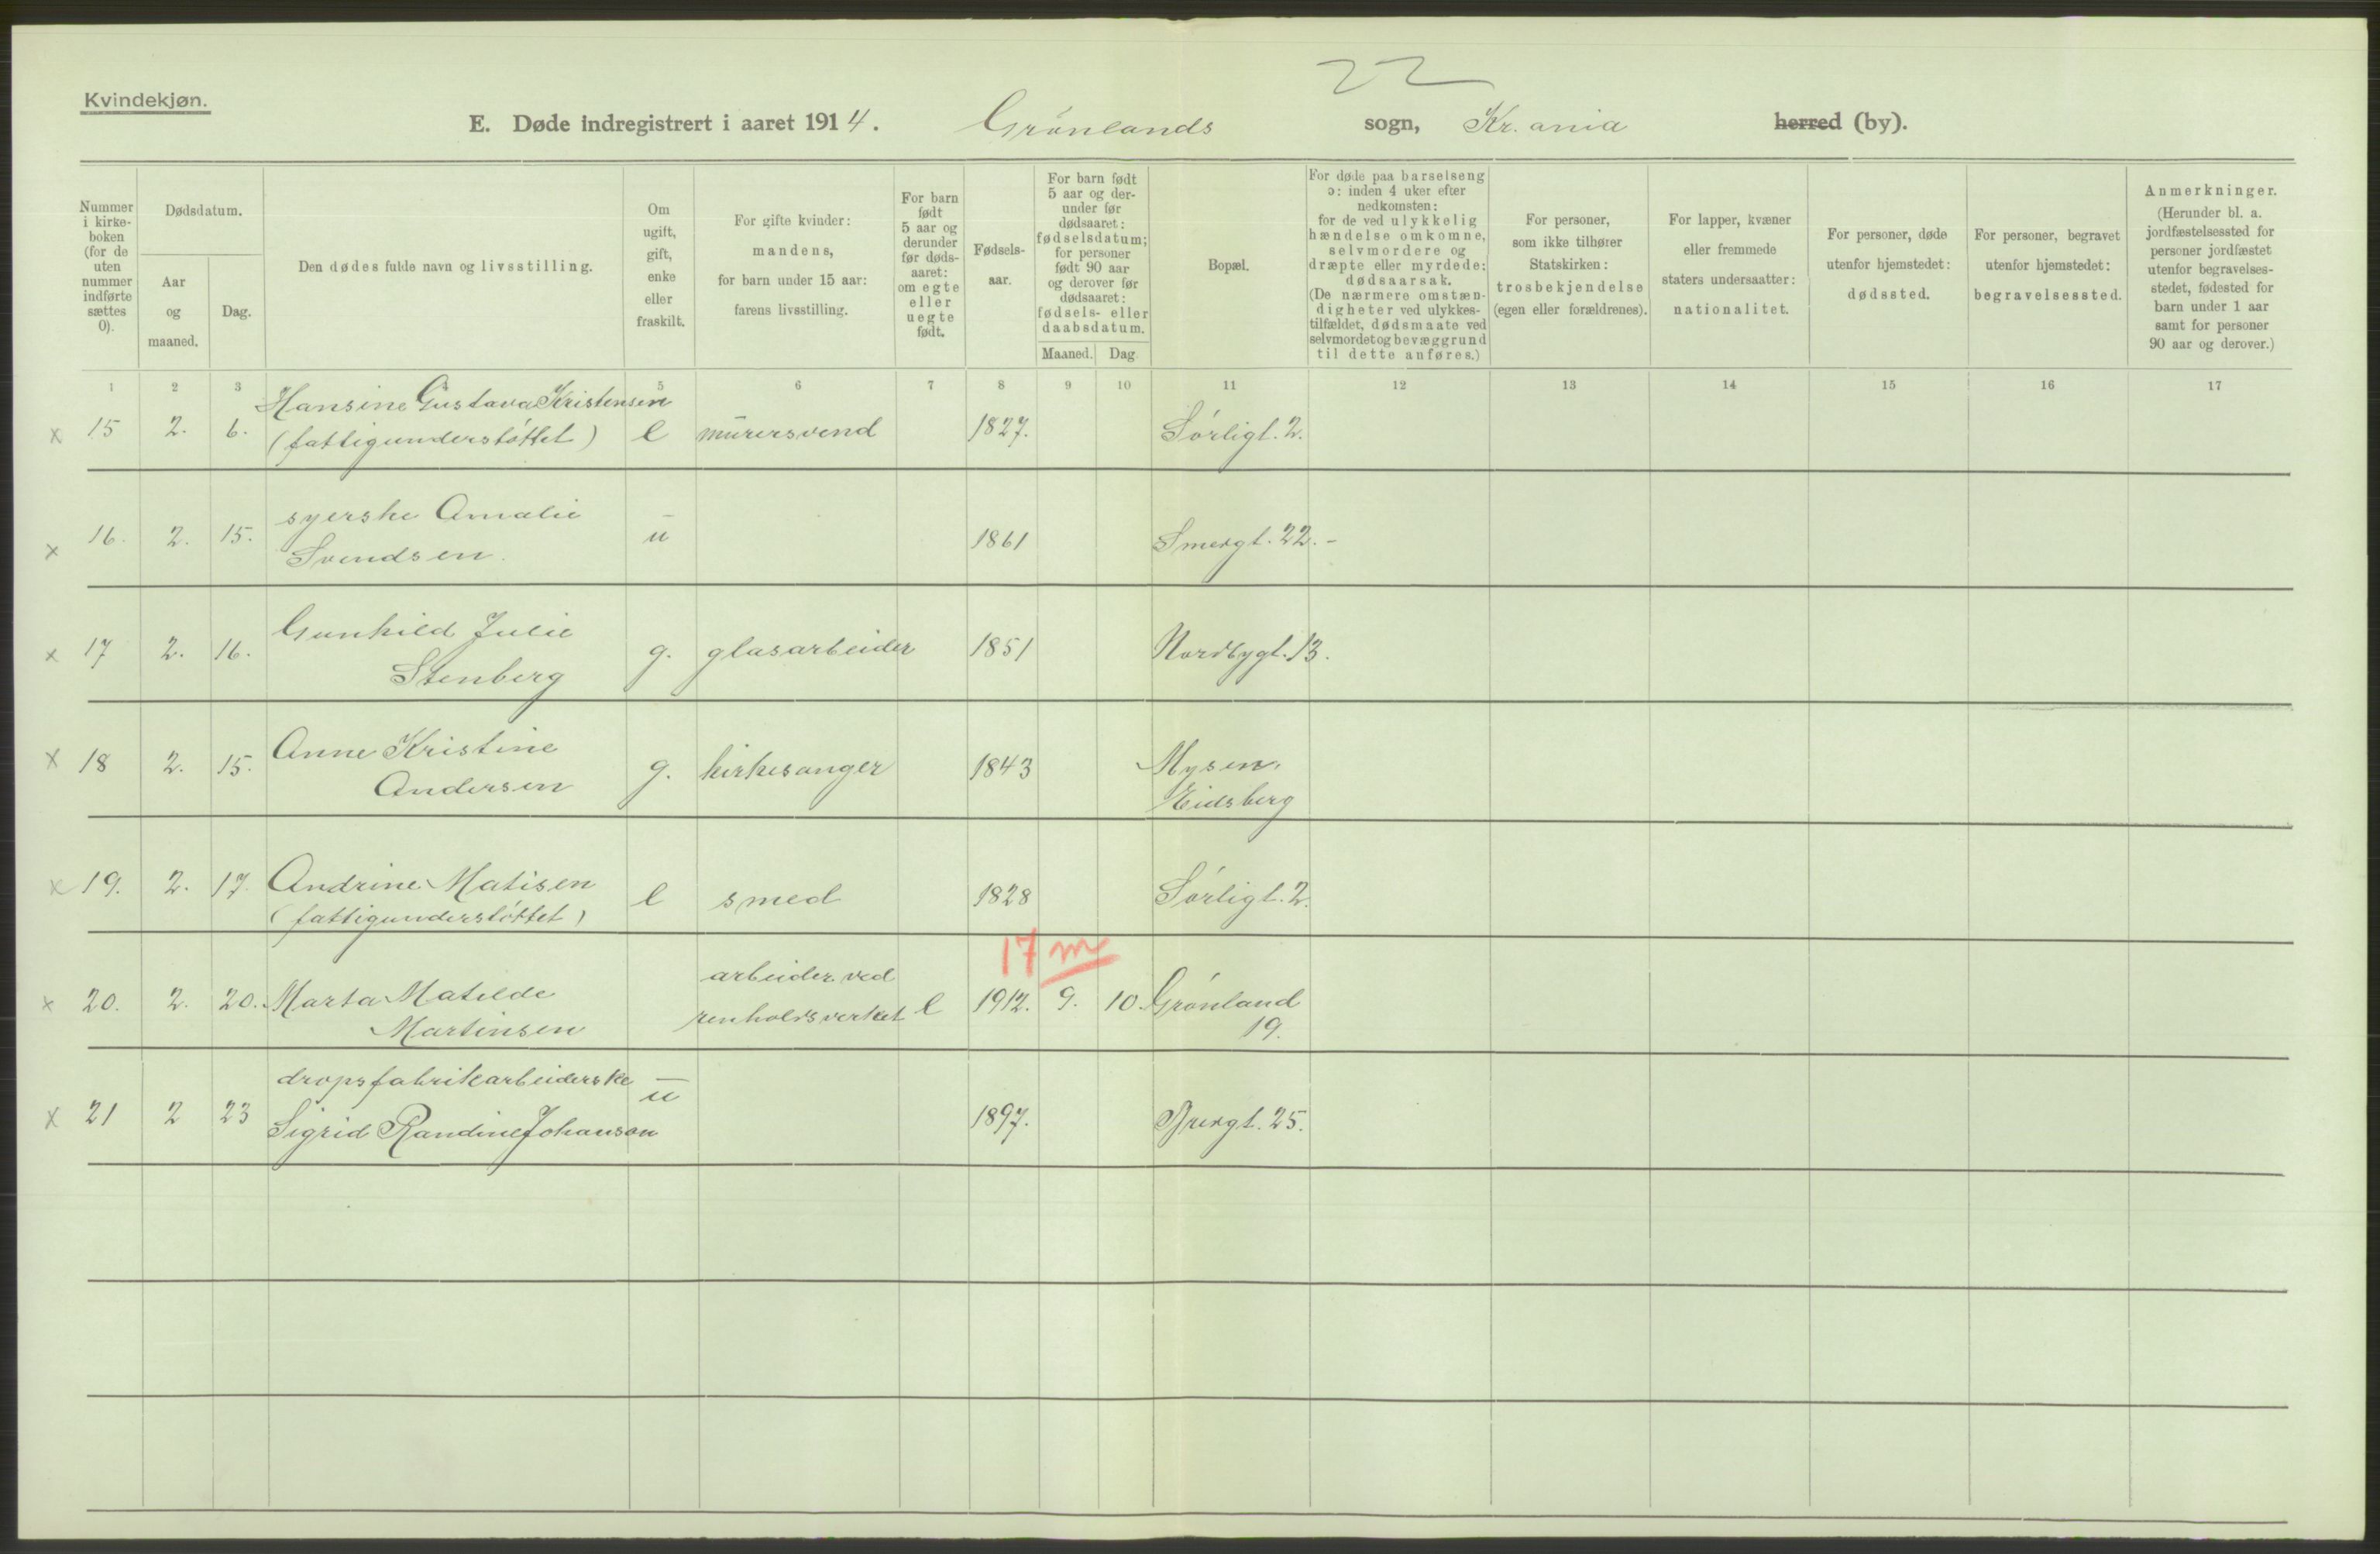 22
Kvindekjøn.
E. Døde indregistrert i aaret 1914. Grønlands sogn, Kr.ania herred (by).
Nummer i kirke-boken (for de uten nummer indførte sættes 0).
Dødsdatum.
Aar og maaned.
Dag.
Den dødes fulde navn og livsstilling.
Om ugift, gift, enke eller fraskilt.
For gifte kvinder: mandens, for barn under 15 aar: farens livsstilling.
For barn født 5 aar og derunder før døds-aaret: om egte eller uegte født.
Fødsels-aar.
For barn født 5 aar og der-under før dødsaaret: fødselsdatum; for personer født 90 aar og derover før dødsaaret: fødsels- eller daabsdatum.
Maaned. Dag
Bopæl.
For døde paa barselseng ɔ: inden 4 uker efter nedkomsten: for de ved ulykkelig hændelse omkomne, selvmordere og dræpte eller myrdede: dødsaarsak. (De nærmere omstæn-digheter ved ulykkes-tilfældet, dødsmaate ved selvmordet og bevæggrund til dette anføres.)
For personer, som ikke tilhører Statskirken: trosbekjendelse (egen eller forældrenes).
For lapper, kvæner eller fremmede staters undersaatter: nationalitet.
For personer, døde utenfor hjemstedet: dødssted.
For personer, begravet utenfor hjemstedet: begravelsessted.
Anmerkninger. (Herunder bl. a. jordfæstelsessted for personer jordfæstet utenfor begravelses-stedet, fødested for barn under 1 aar samt for personer 90 aar og derover.)
1 2 3 5 6 7 8 9 10 11 12 13 14 15 16 17
Hansine Gustava Kristensen
x 15 2. 6. (fattigunderstøttet) e murersvend 1827. Sørligt. 2.
syerske Amalie
x 16. 2. 15. Svendsen. u 1861 Smergt. 22.-
Gunhild Julie
x 17 2. 16. Stenberg g. glasarbeider 1851 Nordbygt. 13.
Anne Kristine
x 18 2. 15. Andersen g. kirkesanger 1843 Mysen,
Eidsberg
x 19. 2. 17. Andrine Matisen e smed 1828 Sørligt. 2.
(fattigunderstøttet)
17 m
arbeider ved
x 20. 2. 20. Marta Matilde renholdsverket e 1912. 9. 10. Grønland
Martinsen 19.
dropsfabrikarbeiderske u
x 21 2 23 Sigrid Randine Johanson 1897. Breigt. 25.